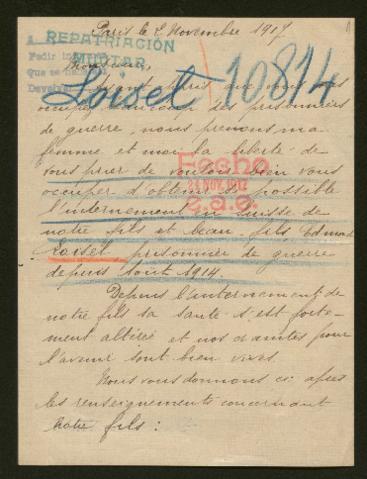 Paris le 2 Novembre 1917
A REPATRIACIÓN
MILITAR
Pedir
Que se
Monsieur,
Loiset 10.814
appris que vous vous
occupez beaucoup des prisonniers
de guerre, nous prenons, ma
femme et moi la liberté de
vous prier de vouloir bien vous
Fecho
24 NOV. 1917
occuper d'obtenir si possible
l'internement en Suisse de
notre fils et beau-fils, Edmond
Loiset prisonnier de guerre
depuis août 1914.
Depuis l'internement de
notre fils sa santé s'est forte-
ment altérée et nos craintes pour
l'avenir sont bien vives.
Nous vous donnons ci-après
les renseignements concernant
notre fils :